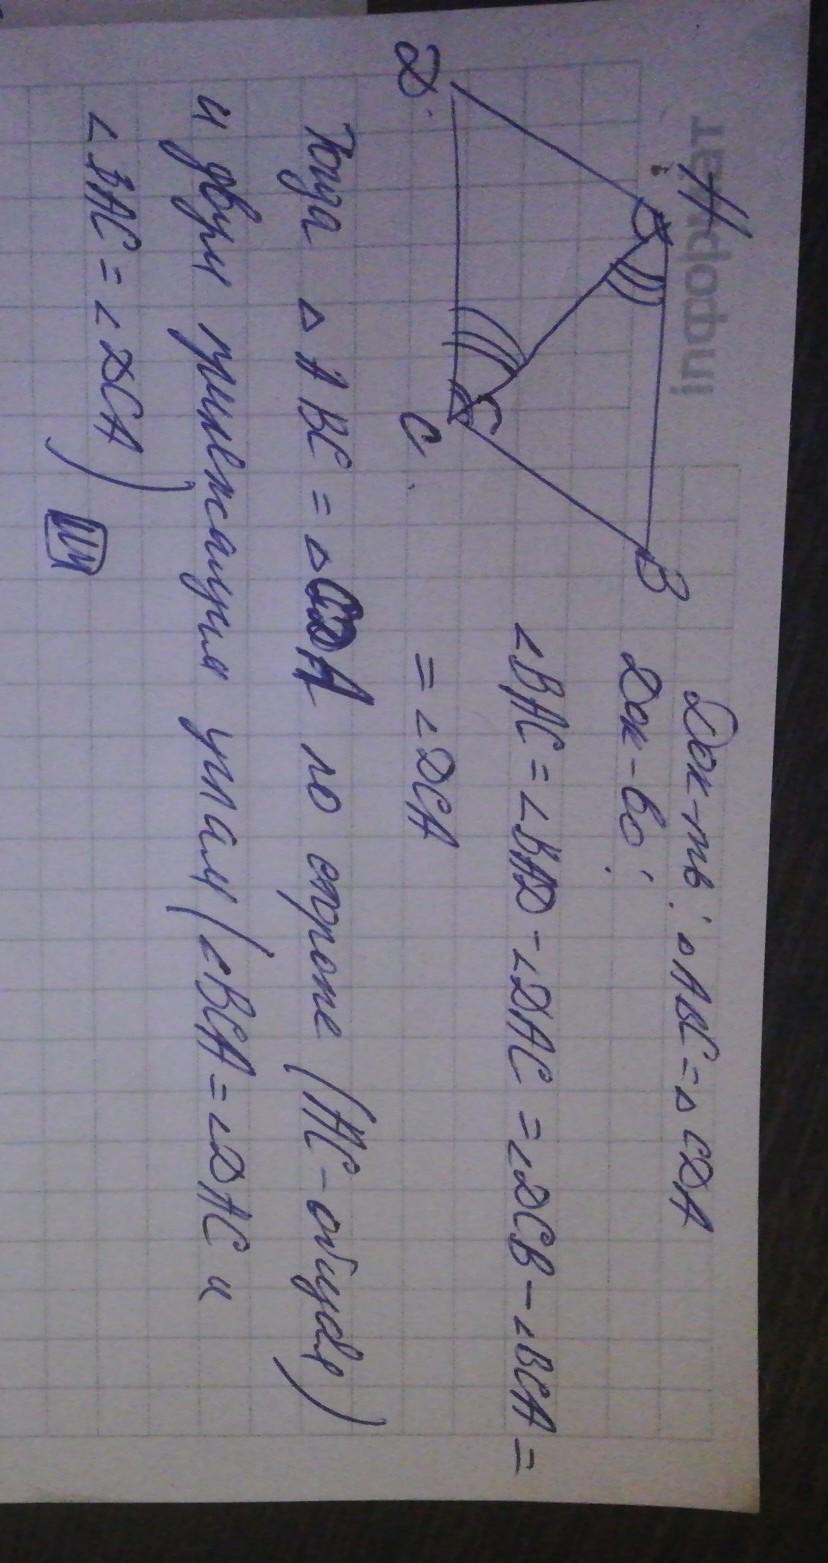 формат
A
B
D
C
Док-ть: △ABC = △CDA
Док-во:
∠BAC = ∠BAD - ∠DAC = ∠DCB - ∠BCA =
= ∠DCA
Тогда △ABC = △CDA по стороне (AC - общая)
и двум прилежащим углам (∠BCA = ∠DAC и
∠BAC = ∠DCA)